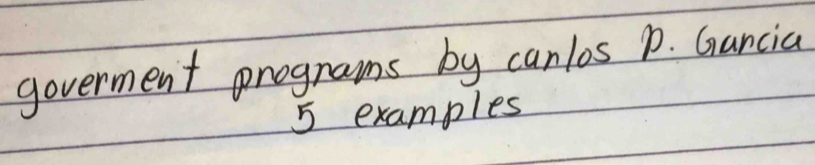 goverment programs by carlos P. Garcia
5 examples